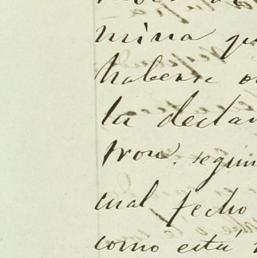 mina qu
haberse
la declar
tron. segun
cual fecho
como esta